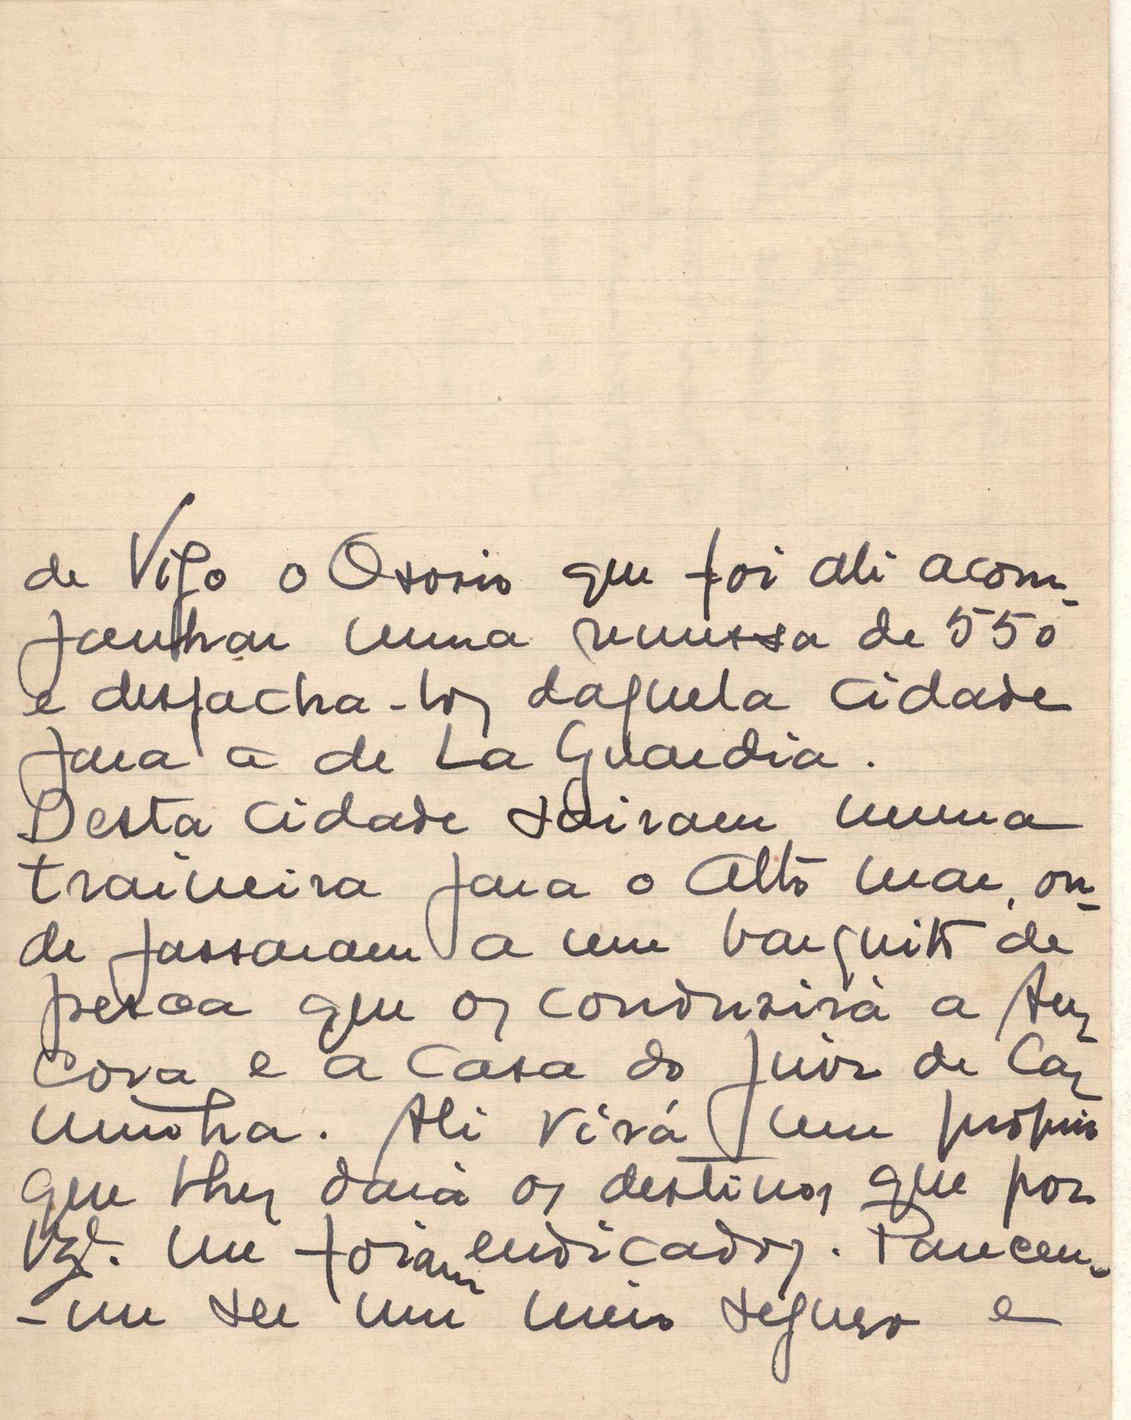 de Vigo o Osorio que foi ali acom-
panhar uma remessa de 550
e despacha-los daquela cidade
para a de La Guardia.
Desta cidade sairam numa
traineira para o alto mar, on-
de passaram a um barquito de
pesca que os condusirá a
cora e a casa do juiz de Ca-
minha. Ali virá um proprio
que lhes dará os destinos que por
me foram indicados. Parecem-
-me ser um meio seguro e